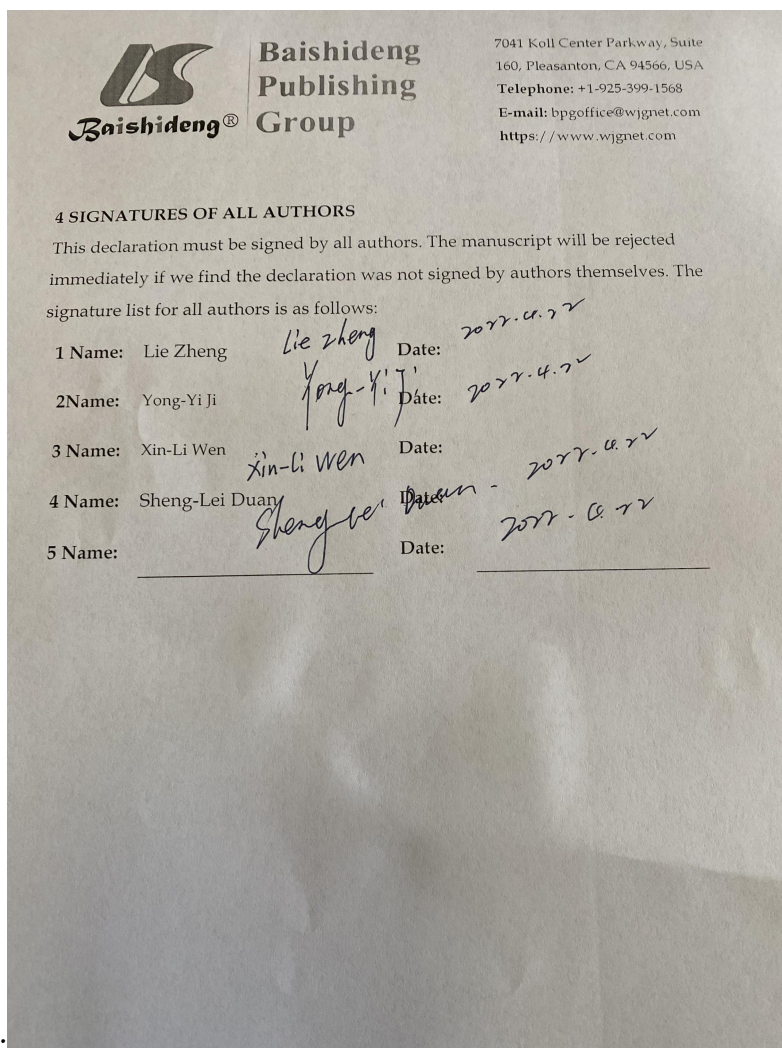 Baishideng®
Baishideng
Publishing
Group
7041 Koll Center Parkway, Suite
160, Pleasanton, CA 94566, USA
Telephone: +1-925-399-1568
E-mail: bpgoffice@wjgnet.com
https://www.wjgnet.com
4 SIGNATURES OF ALL AUTHORS
This declaration must be signed by all authors. The manuscript will be rejected
immediately if we find the declaration was not signed by authors themselves. The
signature list for all authors is as follows:
1 Name: Lie Zheng Lie zheng Date: 2022.4.22
2Name: Yong-Yi Ji Yong-Yi Ji Date: 2022.4.22
3 Name: Xin-Li Wen Xin-Li Wen Date: 2022.4.22
4 Name: Sheng-Lei Duan Sheng-Lei Duan Date: 2022.4.22
5 Name: Date: